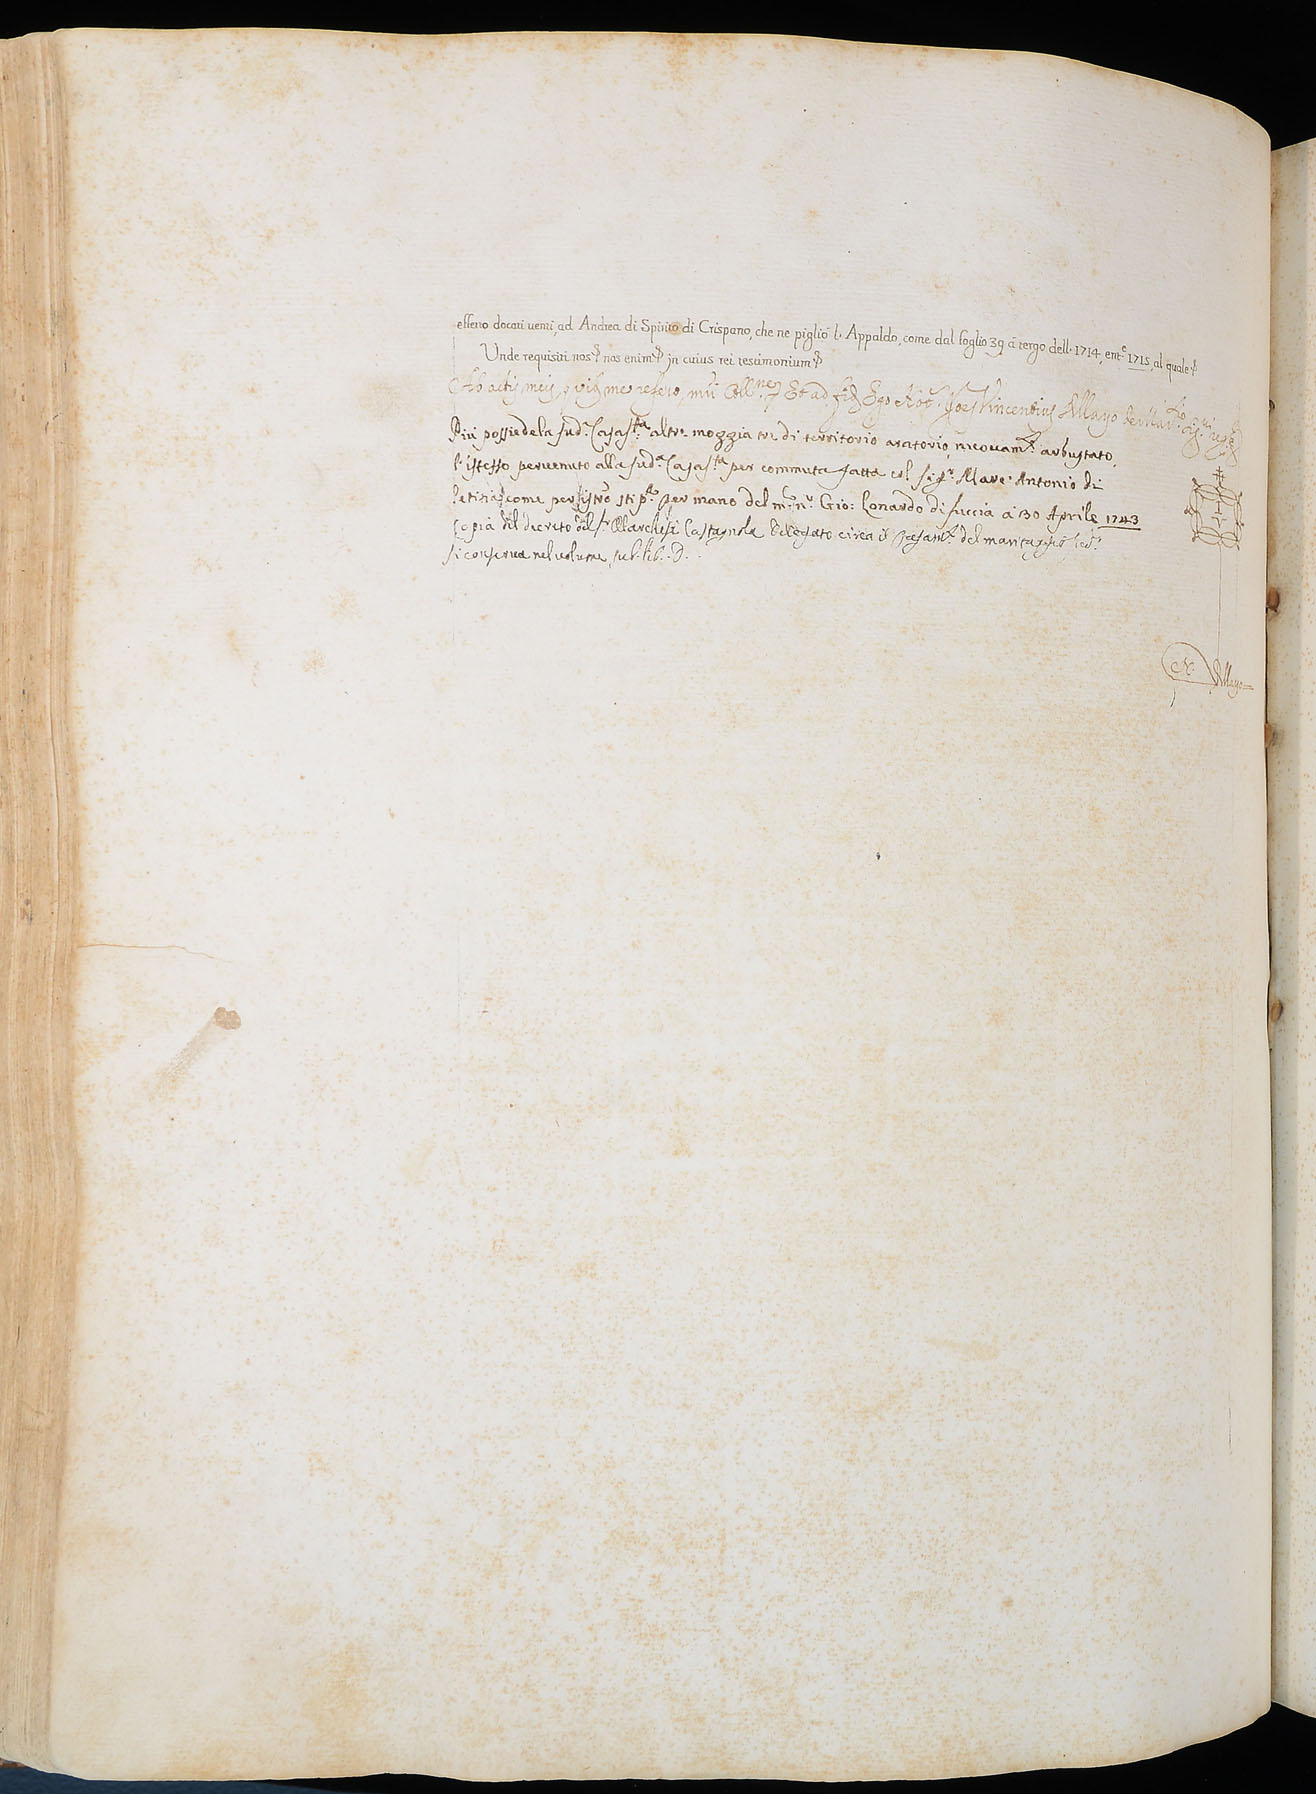 esseno docati uenti, ad Andrea di Spirito di Crispano, che ne pigliò l' Appaldo, come dal foglio 39 à tergo dell' 1714, em.e 1715, al quale
Unde requisiti nos nos enim in cuius rei testimonium
Ab actis meis, quibus me refero, Et ad fid. Ego Not. Joes Vincentius Mayo de
Più possiede la sud.a Casa s.ta altre moggia tre di territorio aratorio, nuouam.te arbustato,
l'istesso peruenuto alla sud.a Casa s.ta per commuta fatta col Sig.r Marc' Antonio di
letizia, come per istro stip.to per mano del m.co n.r Gio: Lonardo di fuccia a 30 Aprile 1743
Copia del decreto del Sr Marchese Castagnola Delegato circa il pagam.to del maritaggio
si conserua nel volume, sub. lib. D.
N. Mayo